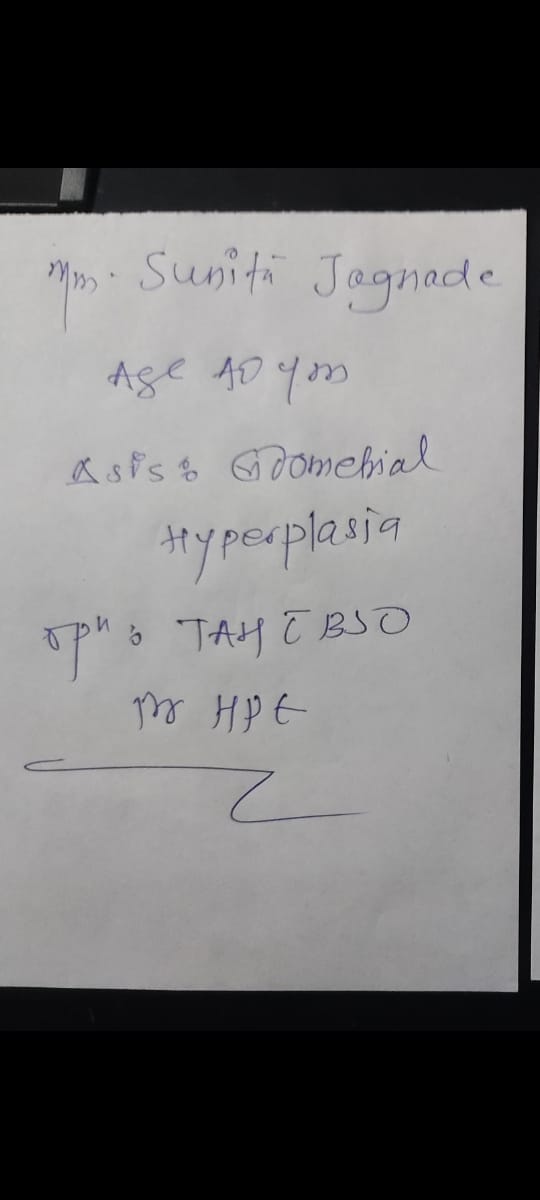 Mrs. Sunita Jagnade
Age 40 yrs
Δsis: Endometrial
Hyperplasia
opⁿ: TAH c̄ BSO
for HPE